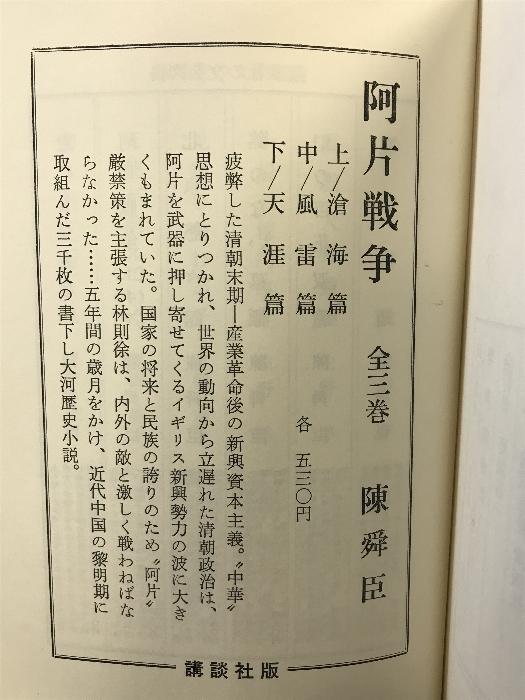 阿片戦争　全三巻　陳舜臣
上/滄海篇
中/風雷篇　各 五三〇円
下/天涯篇
疲弊した清朝末期―産業革命後の新興資本主義。〝中華〟
思想にとりつかれ、世界の動向から立遅れた清朝政治は、
阿片を武器に押し寄せてくるイギリス新興勢力の波に大き
くもまれていた。国家の将来と民族の誇りのため〝阿片〟
厳禁策を主張する林則徐は、内外の敵と激しく戦わねばな
らなかった……五年間の歳月をかけ、近代中国の黎明期に
取組んだ三千枚の書下し大河歴史小説。
講談社版